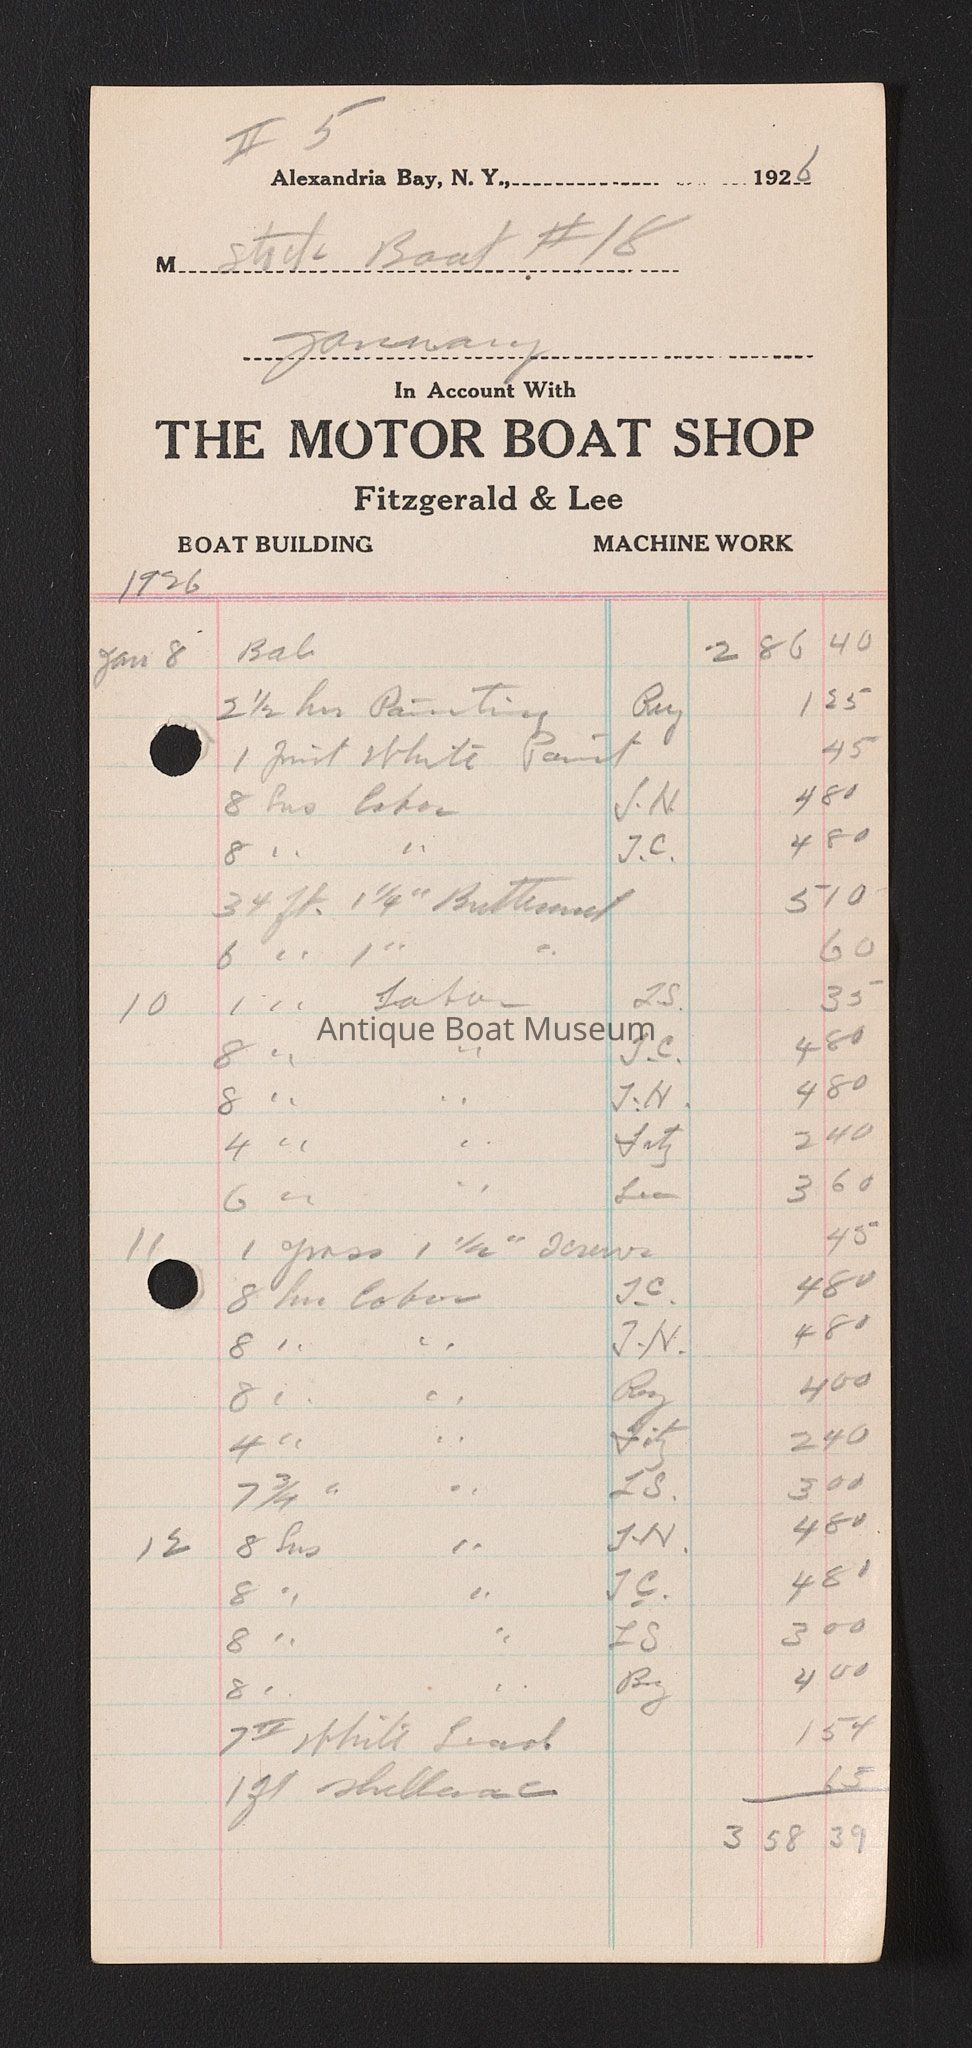 # 5
Alexandria Bay, N. Y., 1926
M Stock Boat #18
January
In Account With
THE MOTOR BOAT SHOP
Fitzgerald & Lee
BOAT BUILDING MACHINE WORK
1926
Jan 8 Bal 2 86 40
2 1/2 hrs Painting Ray 1 25
1 pint White Paint 45
8 hrs labor J.N. 4 80
8 " " J.C. 4 80
34 ft. 1 1/4" Butternut 5 10
6 " 1" " 60
10 1 " Labor L.S. 35
Antique Boat Museum
8 " " J.C. 4 80
8 " " J.N. 4 80
4 " " Fitz 2 40
6 " " Lee 3 60
11 1 gross 1 1/2" Screws 45
8 hrs labor J.C. 4 80
8 " " J.N. 4 80
8 " " Ray 4 00
4 " " Fitz 2 40
7 3/4 " " L.S. 3 00
12 8 hrs " J.N. 4 80
8 " " J.C. 4 80
8 " " L S 3 00
8 " " Ray 4 00
7# White Lead 1 54
1 qt shellac 65
3 58 39